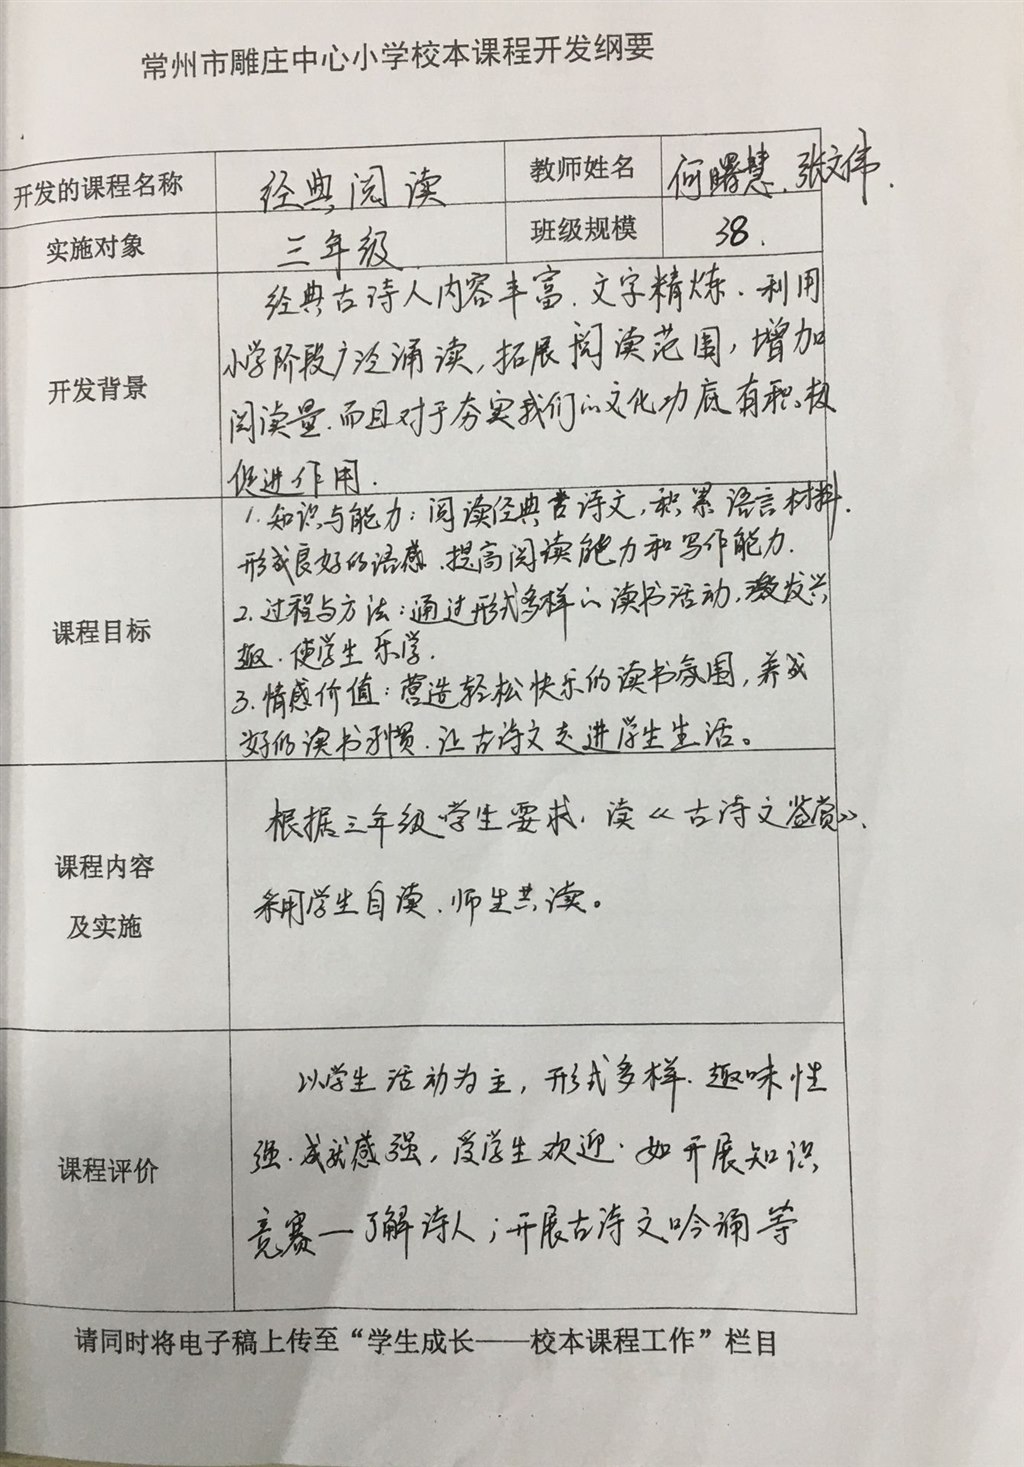 常州市雕庄中心小学校本课程开发纲要
开发的课程名称 经典阅读 教师姓名 何曙慧、张文伟.
实施对象 三年级 班级规模 38.
开发背景
经典古诗人内容丰富、文字精炼、利用
小学阶段广泛诵读,拓展阅读范围,增加
阅读量.而且对于夯实我们的文化功底有积极
促进作用.
课程目标
1.知识与能力:阅读经典古诗文,积累语言材料.
形成良好的语感、提高阅读能力和写作能力.
2.过程与方法:通过形式多样的读书活动,激发兴
趣.使学生乐学.
3.情感价值:营造轻松快乐的读书氛围,养成
好的读书习惯.让古诗文走进学生生活。
课程内容
及实施
根据三年级学生要求,读《古诗文鉴赏》、
采用学生自读、师生共读。
课程评价
以学生活动为主,形式多样.趣味性
强.成就感强,受学生欢迎.如开展知识
竞赛一了解诗人;开展古诗文吟诵等
请同时将电子稿上传至“学生成长——校本课程工作”栏目